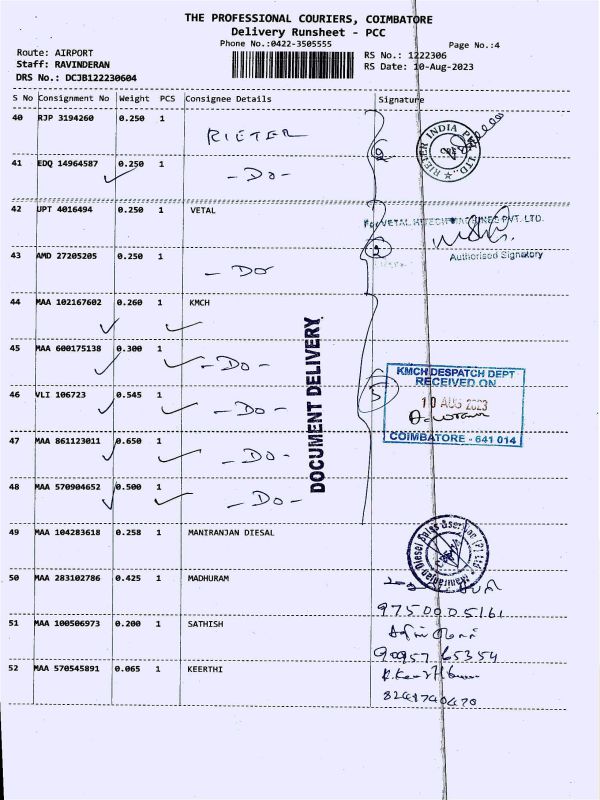 THE PROFESSIONAL COURIERS, COIMBATORE
Delivery Runsheet - PCC
Phone No.:0422-3505555
Page No.:4
Route: AIRPORT
RS No.: 1222306
Staff: RAVINDERAN
RS Date: 10-Aug-2023
DRS No.: DCJB122230604
S No Consignment No Weight PCS Consignee Details Signature
40 RJP 3194260 0.250 1 RIETER
RIETER INDIA PVT. LTD.
41 EDQ 14964587 0.250 1 - Do - 2
42 UPT 4016494 0.250 1 VETAL
For VETAL HITECH MACHINES PVT. LTD.
2
Authorised Signatory
43 AMD 27205205 0.250 1 - Do
44 MAA 102167602 0.260 1 KMCH
45 MAA 600175138 0.300 1 - Do -
46 VLI 106723 0.545 1 - Do - 5
KMCH DESPATCH DEPT
RECEIVED ON
10 AUG 2023
COIMBATORE - 641 014
47 MAA 861123011 0.650 1 - Do -
48 MAA 570904652 0.500 1 - Do -
DOCUMENT DELIVERY
49 MAA 104283618 0.258 1 MANIRANJAN DIESAL
50 MAA 283102786 0.425 1 MADHURAM
9750005161
51 MAA 100506973 0.200 1 SATHISH
90957 65354
52 MAA 570545891 0.065 1 KEERTHI